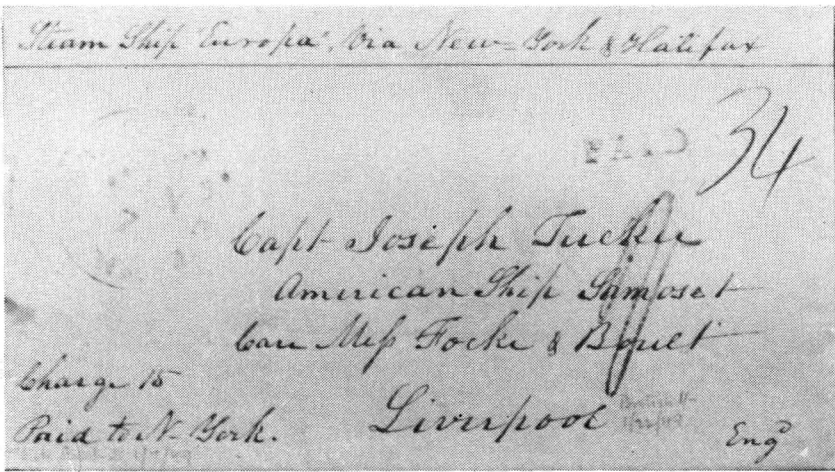 Steam Ship "Europa", Via New-York & Halifax
PAID
34
Capt Joseph Tucker
American Ship Samoset
Care Mess Focke & Boult
Charge 15
Liverpool
Paid to N-York.
Engd